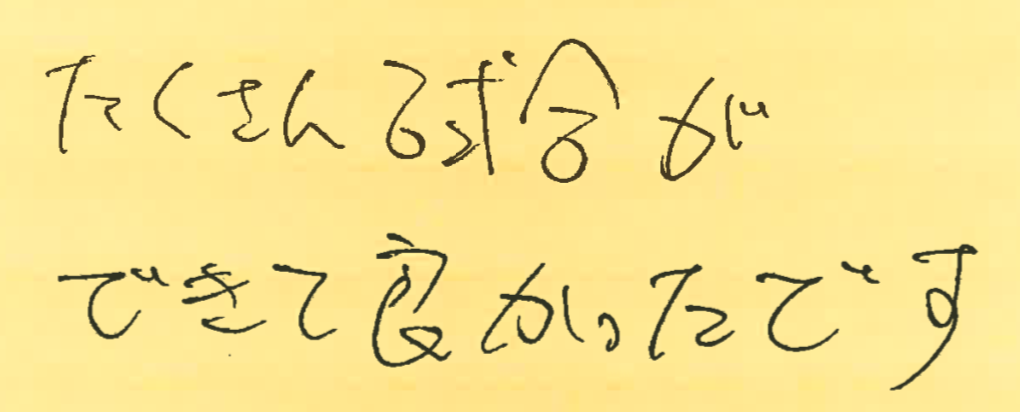 たくさん試合が
できて良かったです